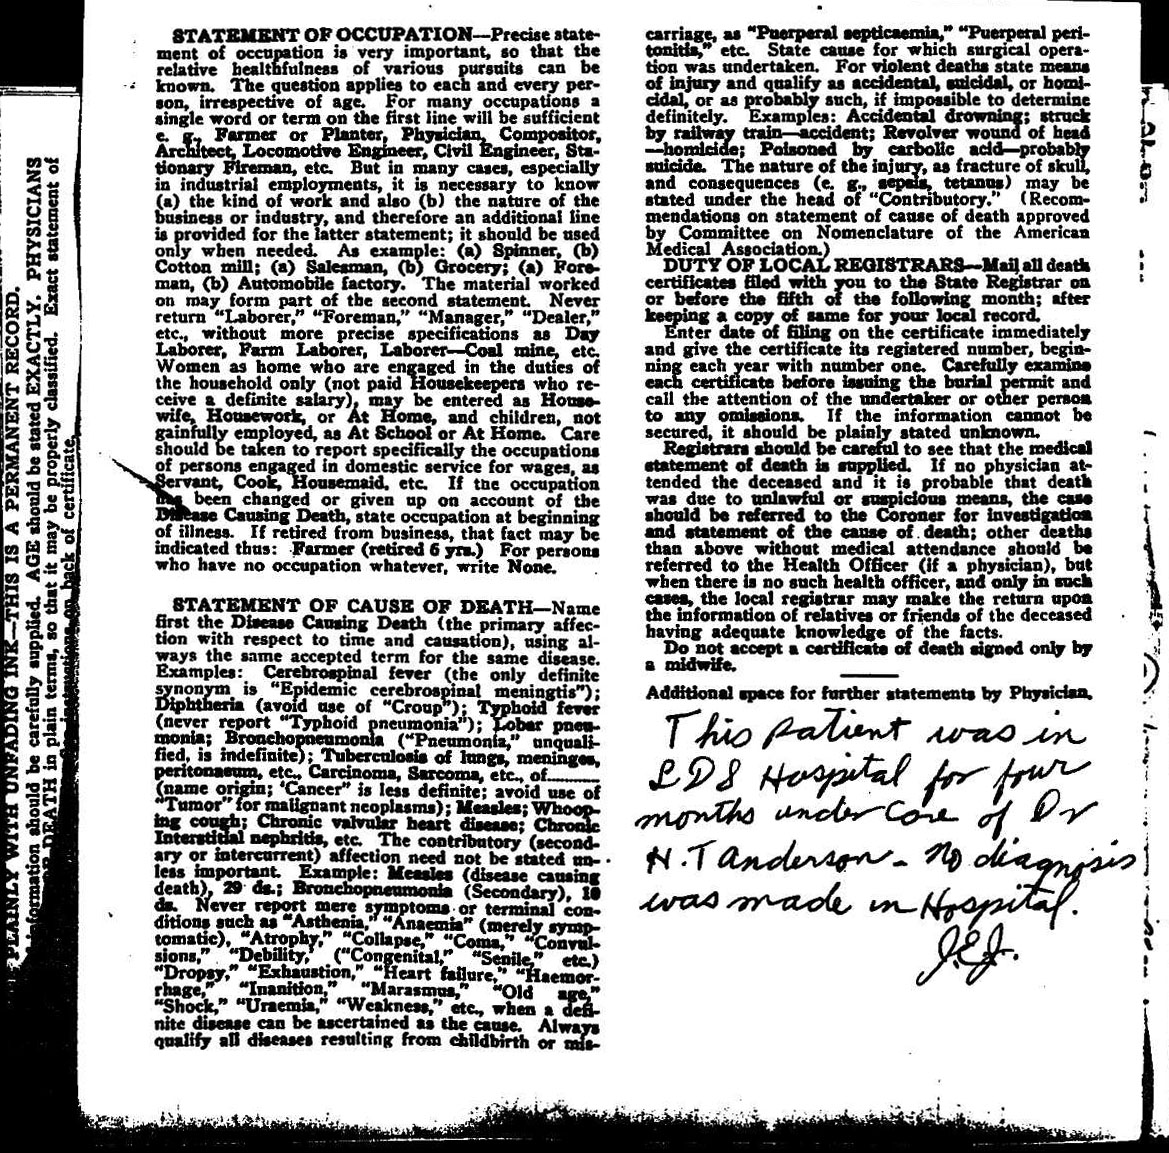 STATEMENT OF OCCUPATION—Precise state-
ment of occupation is very important, so that the
relative healthfulness of various pursuits can be
known. The question applies to each and every per-
son, irrespective of age. For many occupations a
single word or term on the first line will be sufficient
e. g., Farmer or Planter, Physician, Compositor,
Architect, Locomotive Engineer, Civil Engineer, Sta-
tionary Fireman, etc. But in many cases, especially
in industrial employments, it is necessary to know
(a) the kind of work and also (b) the nature of the
business or industry, and therefore an additional line
is provided for the latter statement; it should be used
only when needed. As example: (a) Spinner, (b)
Cotton mill; (a) Salesman, (b) Grocery; (a) Fore-
man, (b) Automobile factory. The material worked
on may form part of the second statement. Never
return "Laborer," "Foreman," "Manager," "Dealer,"
etc., without more precise specifications as Day
Laborer, Farm Laborer, Laborer—Coal mine, etc.
Women as home who are engaged in the duties of
the household only (not paid Housekeepers who re-
ceive a definite salary), may be entered as House-
wife, Housework, or At Home, and children, not
gainfully employed, as At School or At Home. Care
should be taken to report specifically the occupations
of persons engaged in domestic service for wages, as
Servant, Cook, Housemaid, etc. If the occupation
has been changed or given up on account of the
Disease Causing Death, state occupation at beginning
of illness. If retired from business, that fact may be
indicated thus: Farmer (retired 6 yrs.) For persons
who have no occupation whatever, write None.
STATEMENT OF CAUSE OF DEATH—Name
first the Disease Causing Death (the primary affec-
tion with respect to time and causation), using al-
ways the same accepted term for the same disease.
Examples: Cerebrospinal fever (the only definite
synonym is "Epidemic cerebrospinal meningtis");
Diphtheria (avoid use of "Croup"); Typhoid fever
(never report "Typhoid pneumonia"); Lobar pneu-
monia; Bronchopneumonia ("Pneumonia," unquali-
fied, is indefinite); Tuberculosis of lungs, meninges,
peritonaeum, etc., Carcinoma, Sarcoma, etc., of..........
(name origin; 'Cancer" is less definite; avoid use of
"Tumor" for malignant neoplasms); Measles; Whoop-
ing cough; Chronic valvular heart disease; Chronic
Interstitial nephritis, etc. The contributory (second-
ary or intercurrent) affection need not be stated un-
less important. Example: Measles (disease causing
death), 29 ds.; Bronchopneumonia (Secondary), 10
ds. Never report mere symptoms or terminal con-
ditions such as "Asthenia," "Anaemia" (merely symp-
tomatic), "Atrophy," "Collapse," "Coma," "Convul-
sions," "Debility," ("Congenital," "Senile," etc.)
"Dropsy," "Exhaustion," "Heart failure," "Haemor-
rhage," "Inanition," "Marasmus," "Old age,"
"Shock," "Uraemia," "Weakness," etc., when a defi-
nite disease can be ascertained as the cause. Always
qualify all diseases resulting from childbirth or mis-
carriage, as "Puerperal septicaemia," "Puerperal peri-
tonitis," etc. State cause for which surgical opera-
tion was undertaken. For violent deaths state means
of injury and qualify as accidental, suicidal, or homi-
cidal, or as probably such, if impossible to determine
definitely. Examples: Accidental drowning; struck
by railway train—accident; Revolver wound of head
—homicide; Poisoned by carbolic acid—probably
suicide. The nature of the injury, as fracture of skull,
and consequences (e. g., sepsis, tetanus) may be
stated under the head of "Contributory." (Recom-
mendations on statement of cause of death approved
by Committee on Nomenclature of the American
Medical Association.)
DUTY OF LOCAL REGISTRARS—Mail all death
certificates filed with you to the State Registrar on
or before the fifth of the following month; after
keeping a copy of same for your local record.
Enter date of filing on the certificate immediately
and give the certificate its registered number, begin-
ning each year with number one. Carefully examine
each certificate before issuing the burial permit and
call the attention of the undertaker or other person
to any omissions. If the information cannot be
secured, it should be plainly stated unknown.
Registrars should be careful to see that the medical
statement of death is supplied. If no physician at-
tended the deceased and it is probable that death
was due to unlawful or suspicious means, the case
should be referred to the Coroner for investigation
and statement of the cause of death; other deaths
than above without medical attendance should be
referred to the Health Officer (if a physician), but
when there is no such health officer, and only in such
cases, the local registrar may make the return upon
the information of relatives or friends of the deceased
having adequate knowledge of the facts.
Do not accept a certificate of death signed only by
a midwife.
Additional space for further statements by Physician.
This patient was in
LDS Hospital for four
months under care of Dr
H. T Anderson - No diagnosis
was made in Hospital.
J.E.J.
PLAINLY WITH UNFADING INK—THIS IS A PERMANENT RECORD.
information should be carefully supplied. AGE should be stated EXACTLY. PHYSICIANS
DEATH in plain terms, so that it may be properly classified. Exact statement of
instructions on back of certificate.